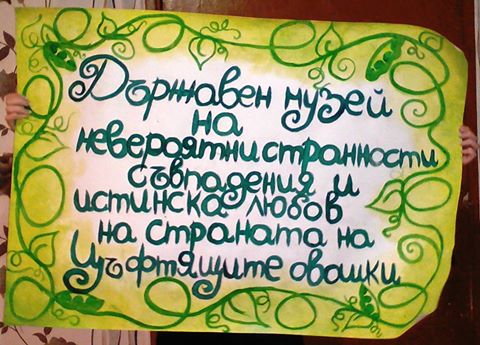 Държавен музей
на
невероятни странности
съвпадения и
истинска любов
на страната на
Цъфтящите овошки